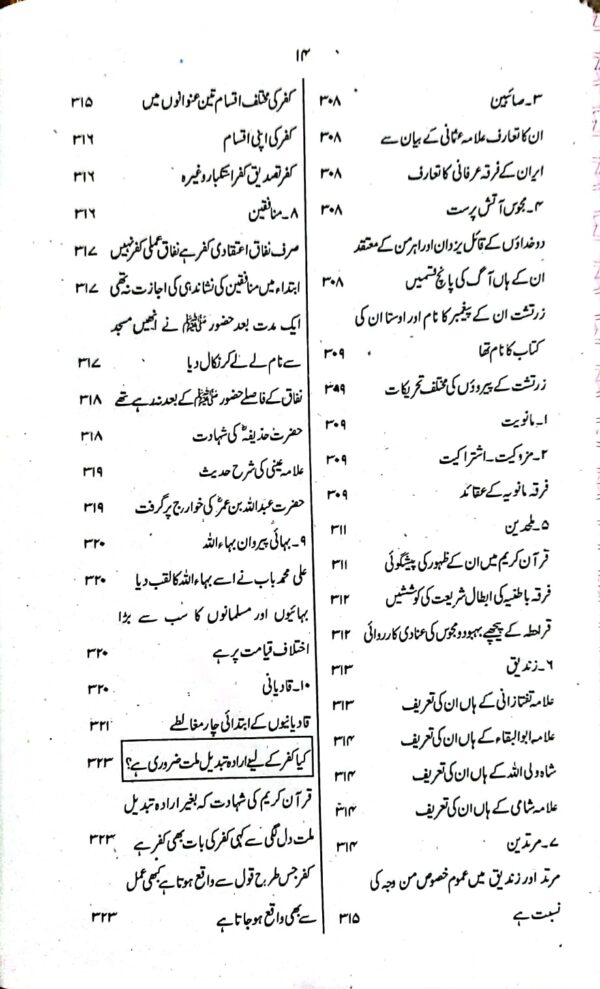 ۱۴
۳۔ صائبین ۳۰۸
ان کا تعارف علامہ عثمانی کے بیان سے ۳۰۸
ایران کے فرقہ عرفانی کا تعارف ۳۰۸
۴۔ مجوس آتش پرست ۳۰۸
دو خداؤں کے قائل یزدان اور اہرمن کے معتقد
ان کے ہاں آگ کی پانچ قسمیں ۳۰۸
زرتشت ان کے پیغمبر کا نام اور اوستا ان کی
کتاب کا نام تھا ۳۰۹
زرتشت کے پیروؤں کی مختلف تحریکات ۳۰۹
۱۔ مانویت ۳۰۹
۲۔ مزوکیت۔ اشتراکیت ۳۰۹
فرقہ مانویہ کے عقائد ۳۰۹
۵۔ ملحدین ۳۱۱
قرآن کریم میں ان کے ظہور کی پیشگوئی ۳۱۱
فرقہ باطنیہ کی ابطال شریعت کی کوششیں ۳۱۲
قرامطہ کے پیچھے یہود و مجوس کی عنادی کارروائی ۳۱۲
۶۔ زندیق ۳۱۳
علامہ تفتازانی کے ہاں ان کی تعریف ۳۱۳
علامہ ابوالبقاء کے ہاں ان کی تعریف ۳۱۴
شاہ ولی اللہ کے ہاں ان کی تعریف ۳۱۴
علامہ شامی کے ہاں ان کی تعریف ۳۱۴
۷۔ مرتدین ۳۱۴
مرتد اور زندیق میں عموم خصوص من وجہ کی
نسبت ہے ۳۱۵
کفر کی مختلف اقسام تین عنوانوں میں ۳۱۵
کفر کی اپنی اقسام ۳۱۶
کفر تصدیق کفر استکبار وغیرہ ۳۱۶
۸۔ منافقین ۳۱۶
صرف نفاق اعتقادی کفر ہے نفاق عملی کفر نہیں ۳۱۷
ابتداء میں منافقین کی نشاندہی کی اجازت نہ تھی ۳۱۷
ایک مدت بعد حضور ﷺ نے انھیں مسجد
سے نام لے لے کر نکال دیا ۳۱۷
نفاق کے فاصلے حضور ﷺ کے بعد نہ رہے تھے ۳۱۸
حضرت حذیفہؓ کی شہادت ۳۱۸
علامہ عینی کی شرح حدیث ۳۱۹
حضرت عبداللہ بن عمرؓ کی خوارج پر گرفت ۳۱۹
۹۔ بہائی پیروان بہاء اللہ ۳۲۰
علی محمد باب نے اسے بہاء اللہ کا لقب دیا ۳۲۰
بہائیوں اور مسلمانوں کا سب سے بڑا
اختلاف قیامت پر ہے ۳۲۰
۱۰۔ قادیانی ۳۲۰
قادیانیوں کے ابتدائی چار مغالطے ۳۲۱
کیا کفر کے لیے ارادہ تبدیل ملت ضروری ہے؟ ۳۲۳
قرآن کریم کی شہادت کہ بغیر ارادہ تبدیل
ملت دل لگی سے کہی کفر کی بات بھی کفر ہے ۳۲۳
کفر جس طرح قول سے واقع ہوتا ہے کبھی عمل
سے بھی واقع ہو جاتا ہے ۳۲۳